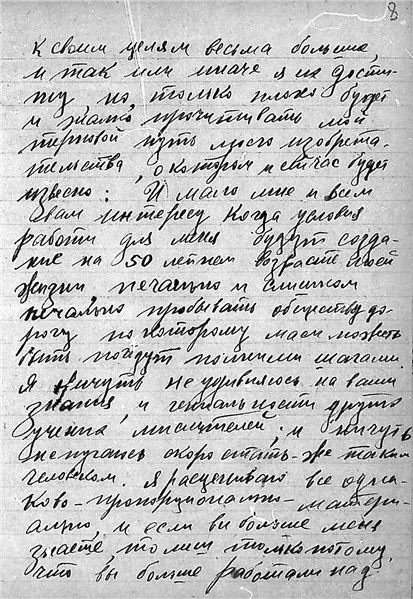 8
к своим целям весьма большая,
и так или иначе я их дости-
гну, но, только плохо будет
и жалко, прочитывать мой
терновой путь моего изобрета-
тельства, о котором и сейчас будет
извесно: И мало мне и всем
вам интересу когда условия
работи для меня будут созда-
ние на 50 летнем возрасте моей
жизни печально и слишком
печально пробывать обществу до-
рогу по которому масы
пойдут полними шагами.
Я ничуть не удивляюсь на ваши
знания, и гениальности других
ученых, мислителей, и ничуть
не пугаюсь скоро стать-же таким
человеком. Я расцениваю все одина-
ково-пропорционально-матери-
ально, и если ви больше меня
знаете, то лиш только потому,
что вы больше работали над